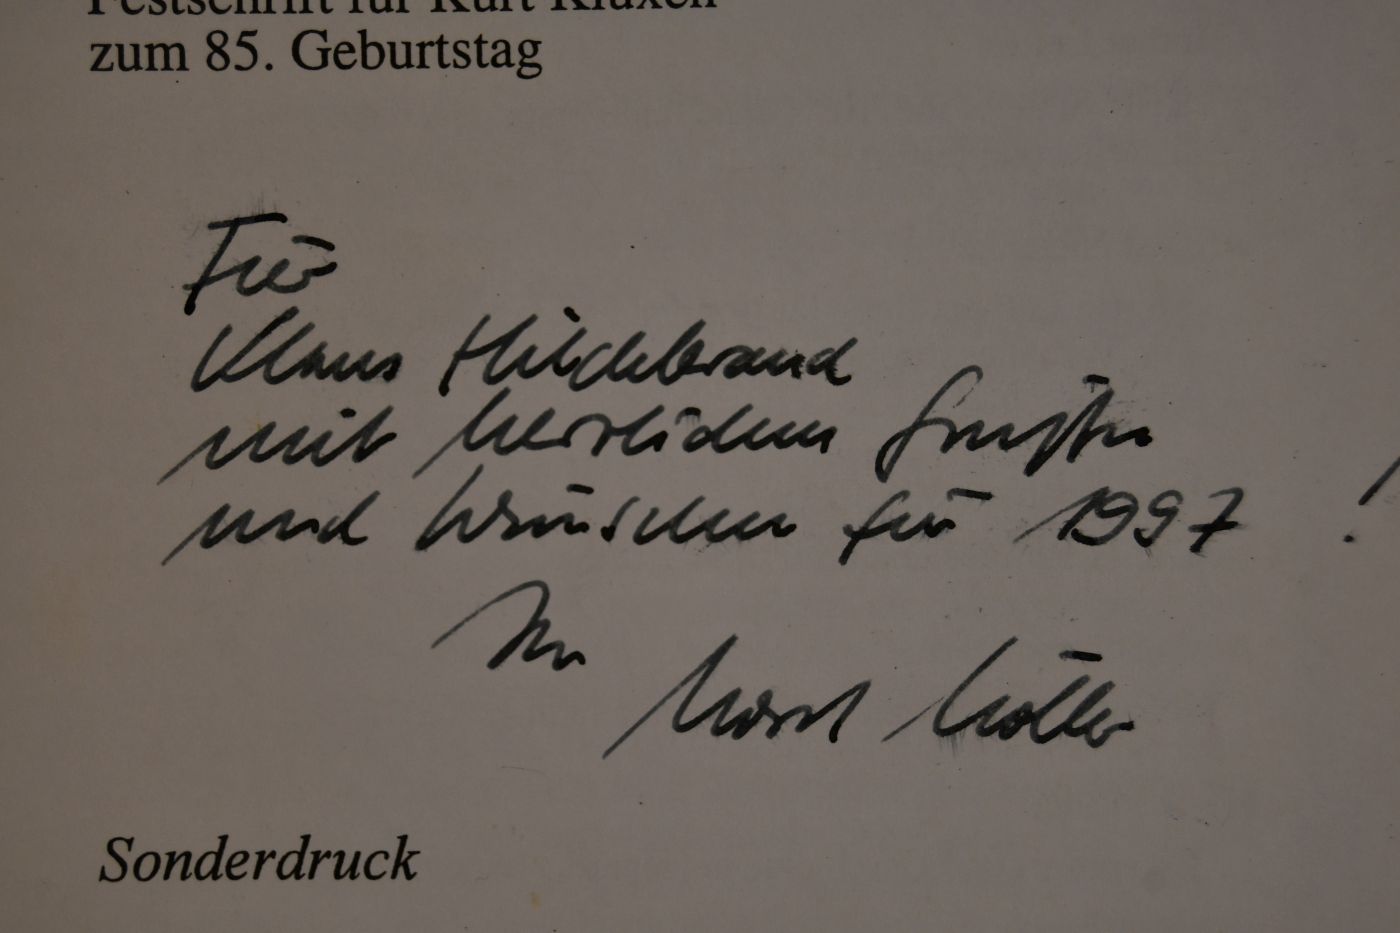 Festschrift für Kurt Kluxen
zum 85. Geburtstag
Für
Klaus Hildebrand
mit herzlichen Grüßen
und Wünschen für 1997!
Ihr
Horst Möller
Sonderdruck